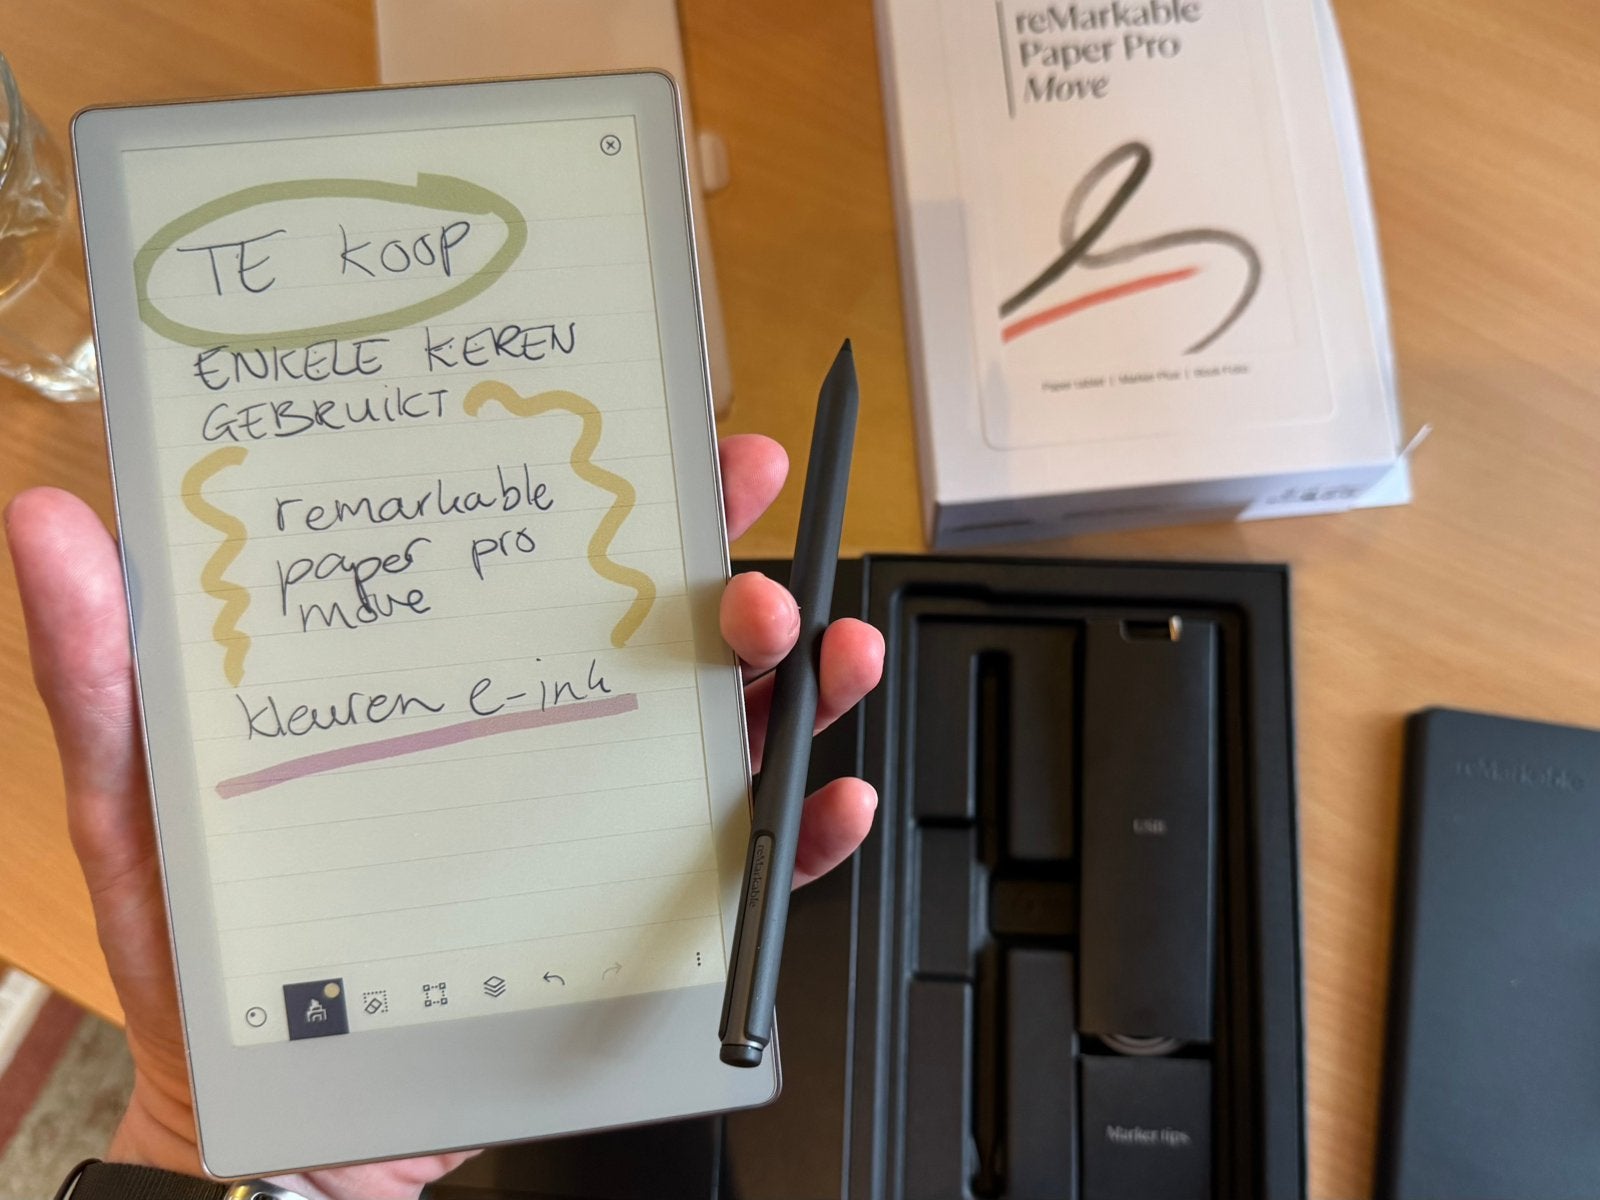 TE KOOP
ENKELE KEREN
GEBRUIKT
remarkable
paper pro
move
kleuren e-ink
reMarkable
reMarkable
Paper Pro
Move
Paper tablet | Marker Plus | Book Folio
USB
Marker tips
reMarkable